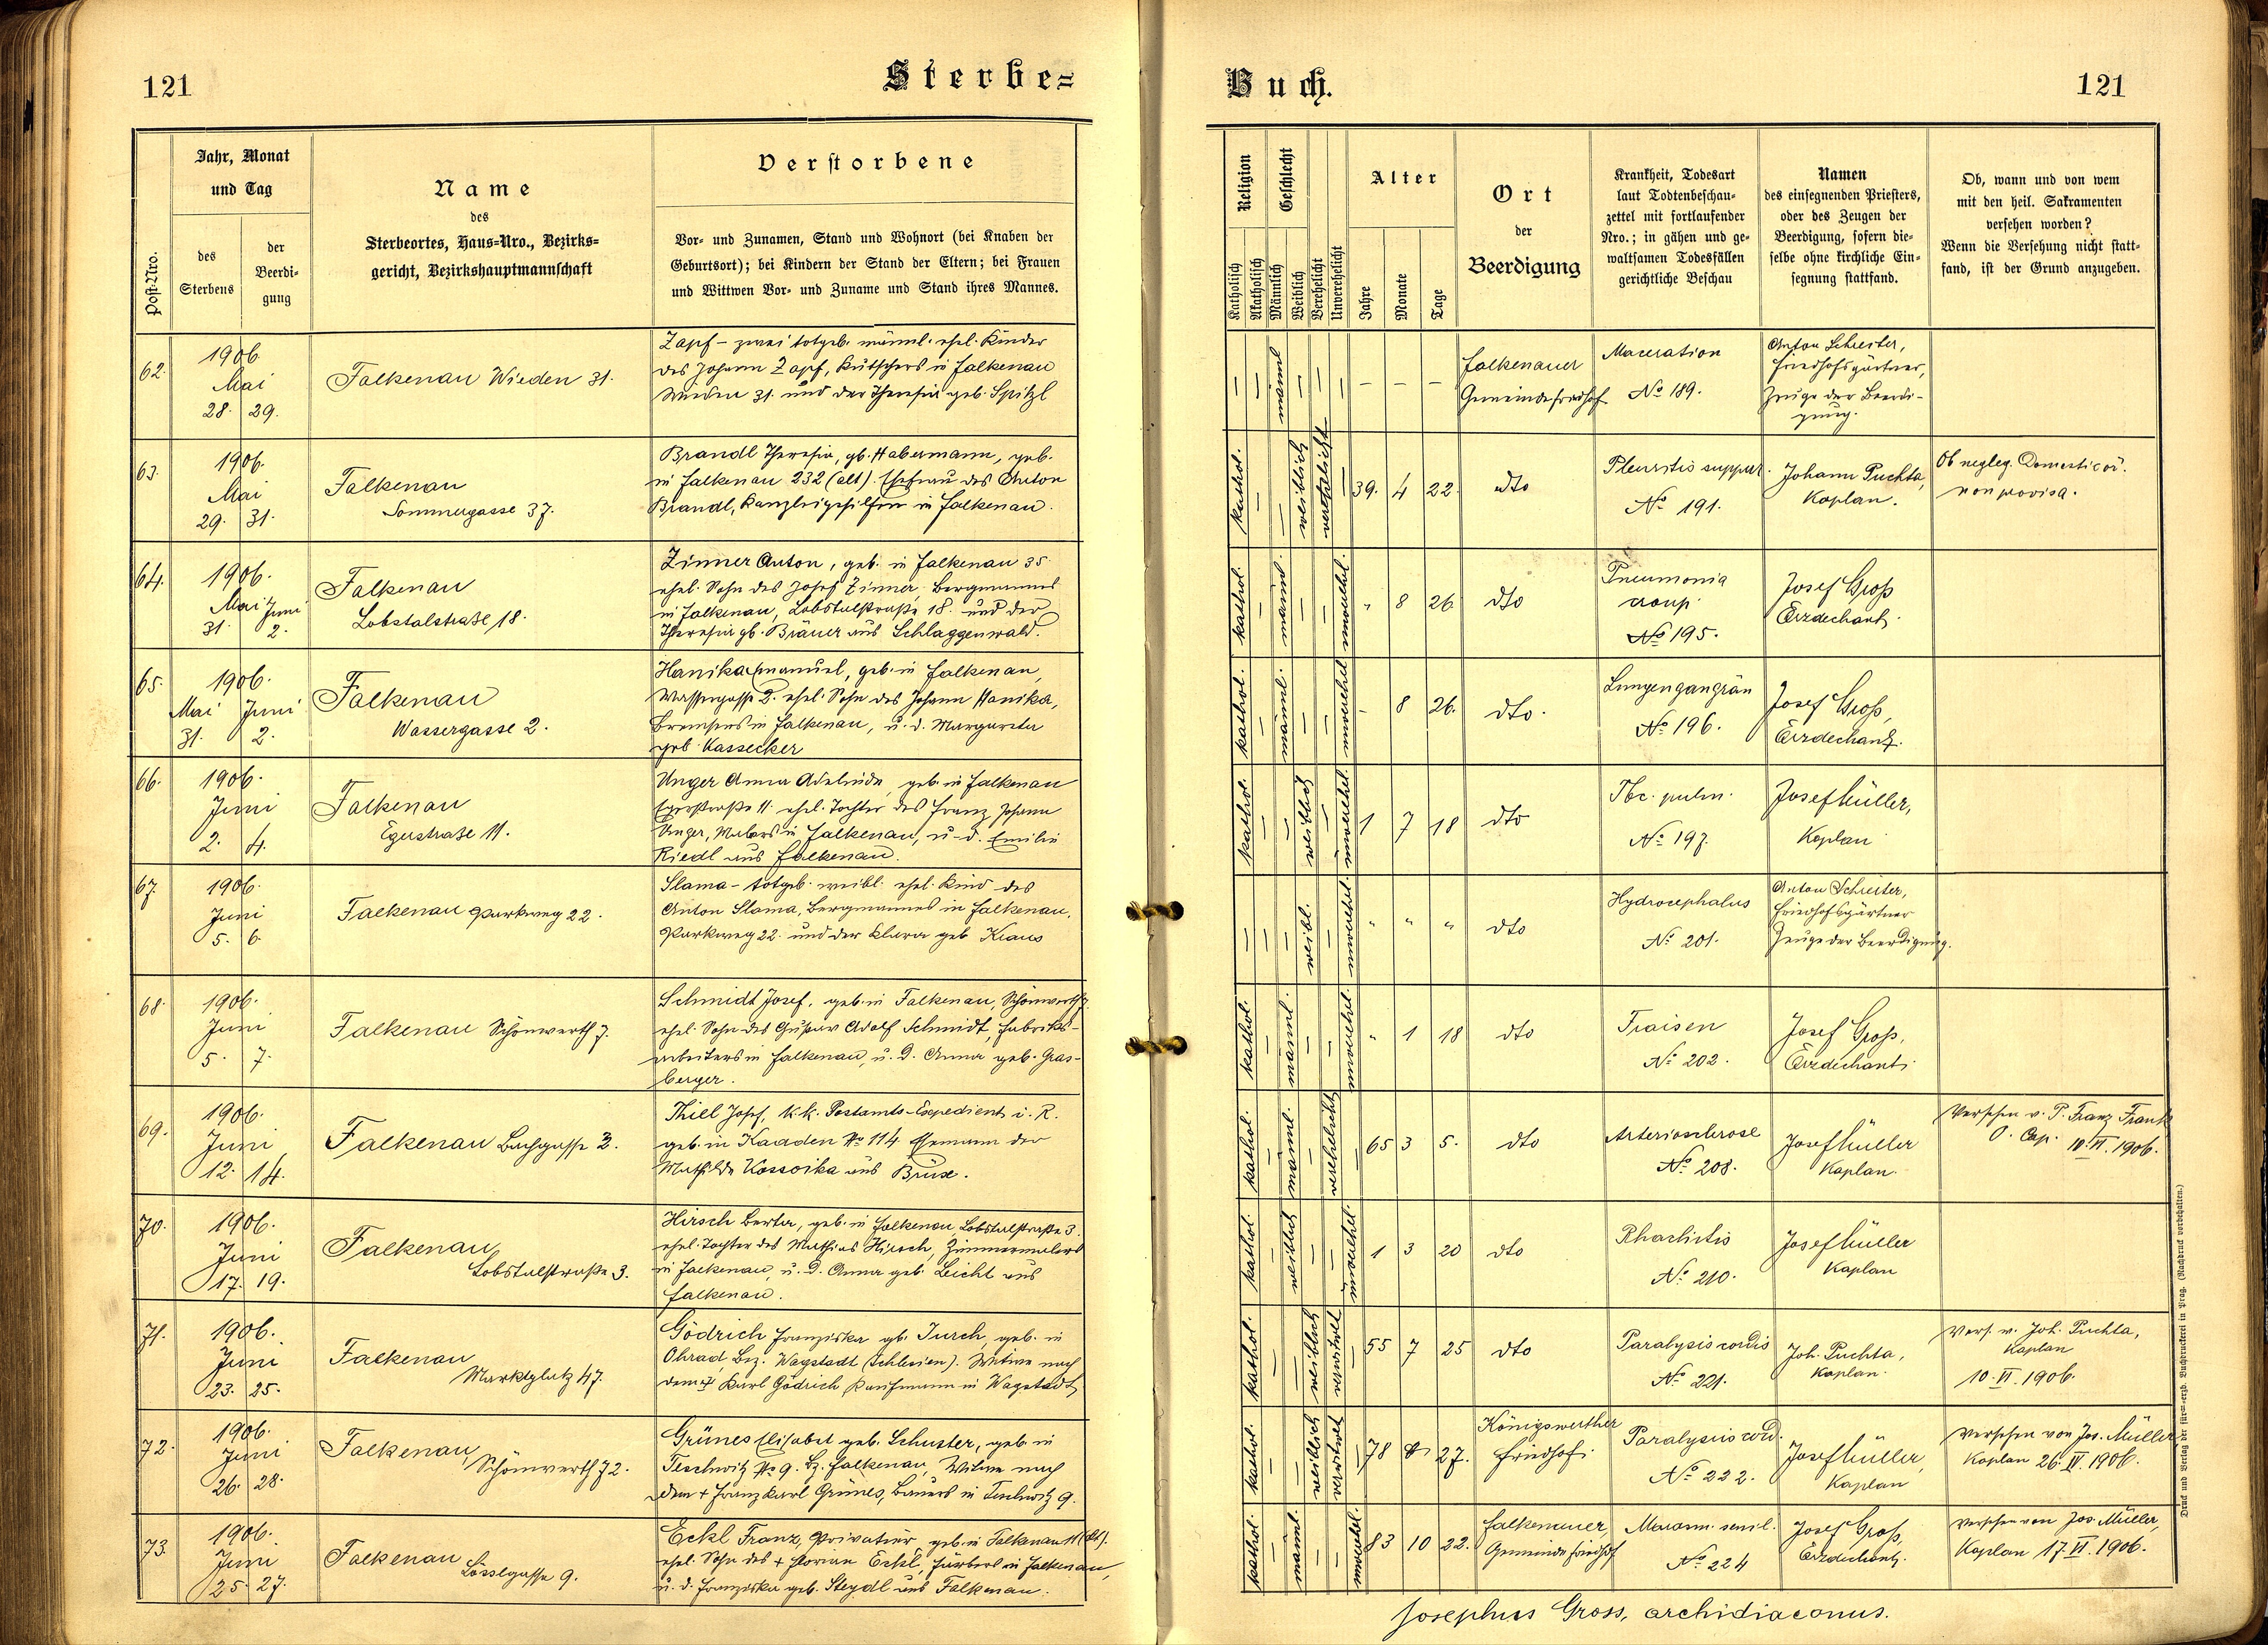 121
Sterbe=
Jahr, Monat
und Tag
Verstorbene
Name
des
Sterbeortes, Haus=Nro., Bezirks=
gericht, Bezirkshauptmannschaft
Post-Nro.
des
Sterbens
der
Beerdi-
gung
Vor- und Zunamen, Stand und Wohnort (bei Knaben der
Geburtsort); bei Kindern der Stand der Eltern; bei Frauen
und Wittwen Vor- und Zuname und Stand ihres Mannes.
62.
1906
Mai
28. 29.
Falkenau Wieden 31.
Zapf – zwei totgeb. männl. ehel. Kinder
des Johann Zapf, Kutschers in Falkenau
Wieden 31. und der Theresia geb. Spitzl
63.
1906.
Mai
29. 31.
Falkenau
Sommergasse 37.
Brandl Theresia, gb. Habermann, geb.
in Falkenau 232 (alt). Ehefrau des Anton
Brandl, Kanzleigehilfen in Falkenau.
64.
1906.
Mai Juni
31. 2.
Falkenau
Lobstalstraße 18.
Zinner Anton, geb. in Falkenau 35.
ehel. Sohn des Josef Zinner, Bergmannes
in Falkenau, Lobstalstraße 18. und der
Theresia gb. Bräuer aus Schlaggenwald.
65.
1906.
Mai Juni
31. 2.
Falkenau
Wassergasse 2.
Hanika Emanuel, geb. in Falkenau,
Wassergasse 2. ehel. Sohn des Johann Hanika,
Bremsers in Falkenau, u. d. Margareta
geb. Kassecker
66.
1906.
Juni
2. 4.
Falkenau
Egerstraße 11.
Unger Anna Adelheide, geb. in Falkenau
Egerstraße 11. ehel. Tochter des Franz Johann
Unger, Malers in Falkenau, u. d. Emilie
Riedl aus Falkenau.
67.
1906.
Juni
5. 6.
Falkenau Parkweg 22.
Slama – totgeb. weibl. ehel. Kind des
Anton Slama, Bergmannes in Falkenau,
Parkweg 22. und der Klara geb. Kraus
68.
1906.
Juni
5. 7.
Falkenau Schönwerth 7.
Schmidt Josef, geb. in Falkenau, Schönwerth 7.
ehel. Sohn des Gustav Adolf Schmidt, Fabriks-
arbeiters in Falkenau, u. d. Anna geb. Gras-
berger.
69.
1906.
Juni
12. 14.
Falkenau Bachgasse 3.
Thiel Josef, k.k. Postamts-Expedient i. R.
geb. in Kaaden No 114. Ehemann der
Mathilde Kossoika aus Brüx.
70.
1906.
Juni
17. 19.
Falkenau
Lobstalstraße 3.
Hirsch Berta, geb. in Falkenau, Lobstalstraße 3.
ehel. Tochter des Mathias Hirsch, Zimmermalers
in Falkenau, u. d. Anna geb. Leicht aus
Falkenau.
71.
1906.
Juni
23. 25.
Falkenau
Marktplatz 47.
Gödrich Franziska gb. Jurch, geb. in
Ohrad, Bez. Wagstadt (Schlesien). Witwe nach
dem + Karl Gödrich Kaufmann in Wagstadt
72.
1906.
Juni
26. 28.
Falkenau,
Schönwerth 72.
Grünes Elisabet geb. Schuster, geb. in
Teschwitz No 9. Bz. Falkenau, Witwe nach
dem + Franz Karl Grünes, Bauers in Teschwitz 9.
73.
1906.
Juni
25. 27.
Falkenau
Lösslgasse 9.
Eckl Franz, Privatier, geb. in Falkenau 11 (alt).
ehel. Sohn des + Florian Eckl, Färbers in Falkenau,
u. d. Franziska geb. Steydl aus Falkenau.
Buch.
121
Religion
Geschlecht
Alter
Ort
der
Beerdigung
Krankheit, Todesart
laut Todtenbeschau-
zettel mit fortlaufender
Nro.; in gähen und ge-
waltsamen Todesfällen
gerichtliche Beschau
Namen
des einsegnenden Priesters,
oder des Zeugen der
Beerdigung, sofern die-
selbe ohne kirchliche Ein-
segnung stattfand.
Ob, wann und von wem
mit den heil. Sakramenten
versehen worden?
Wenn die Versehung nicht statt-
fand, ist der Grund anzugeben.
Katholisch
Akatholisch
Männlich
Weiblich
Verehelicht
Unverehelicht
Jahre
Monate
Tage
– – männl – – – – – –
Falkenauer
Gemeindefriedhof
Maceration
No 189.
Anton Schiester,
Friedhofsgärtner,
Zeuge der Beerdi-
gung.
kathol. – – weiblich verehelicht – 39. 4 22.
dto
Pleuritis suppur.
No 191.
Johann Puchta,
Kaplan.
Ob negleg. Domesticor.
non provisa.
kathol. – männl. – – unverehel. " 8 26
dto
Pneumonia
croup
No 195.
Josef Groß
Erzdechant.
kathol. – männl. – – unverehel. – 8 26.
dto.
Lungengangrän
No 196.
Josef Groß,
Erzdechant.
kathol. – – weiblich – unverehel. 1 7 18
dto
Tbc. pulm.
No 197.
Josef Müller,
Kaplan
– – – weibl. – unverehel. " " "
dto
Hydrocephalus
No 201.
Anton Schiester,
Friedhofsgärtner
Zeuge der Beerdigung.
kathol. – männl. – – unverehel. " 1 18
dto
Fraisen
No 202.
Josef Groß,
Erzdechant.
kathol. – männl. – verehelicht – 65 3 5.
dto
Arteriosclerose
No 208.
Josef Müller
Kaplan.
Versehen v. P. Franz Frank
O. Cap. 10. VI. 1906.
kathol. – weiblich – – unverehel. 1 3 20
dto
Rhachitis
No 210.
Josef Müller
Kaplan
kathol. – – weiblich verwitwet – 55 7 25
dto
Paralysis cordis
No 221.
Joh. Puchta,
Kaplan.
Vers. v. Joh. Puchta,
Kaplan
10. VI. 1906.
kathol. – – weiblich verwitwet – 78 27.
Königswerther
Friedhof.
Paralysis cord.
No 222.
Josef Müller,
Kaplan
Versehen von Jos. Müller,
Kaplan 26. VI. 1906.
kathol. – männl. – – unverehel. 83 10 22.
Falkenauer,
Gemeindefriedhof
Marasm. senil.
No 224
Josef Groß,
Erzdechant.
Versehen von Jos. Müller,
Kaplan 17. VI. 1906.
Josephus Gross, archidiaconus.
Druck und Verlag der fürst-erzb. Buchdruckerei in Prag. (Nachdruck vorbehalten.)